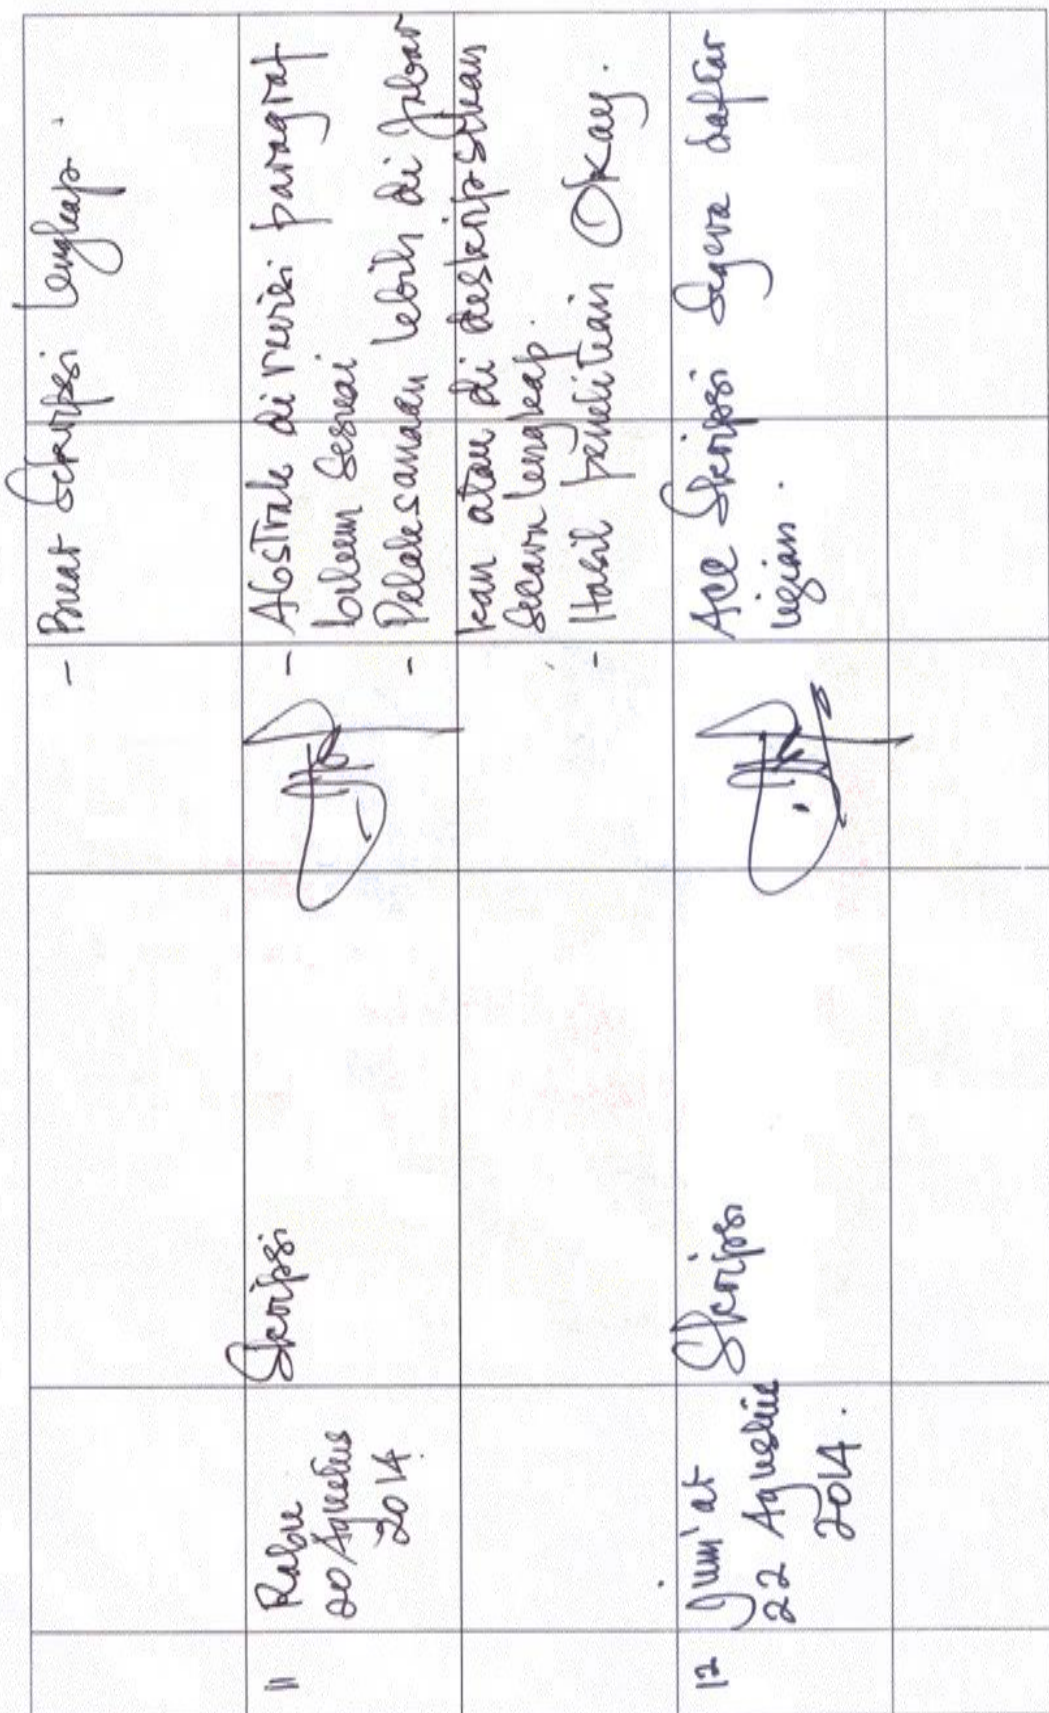 - Buat Skripsi lengkap.
11
Rabu
20 Agustus
2014
Skripsi
- Abstrak di revisi paragraf
belum sesuai
- Pelaksanaan lebih di jabar
kan atau di deskripsikan
secara lengkap.
- Hasil penelitian Okay.
12
Jum'at
22 Agustus
2014.
Skripsi
Acc Skripsi Segera daftar
ujian.